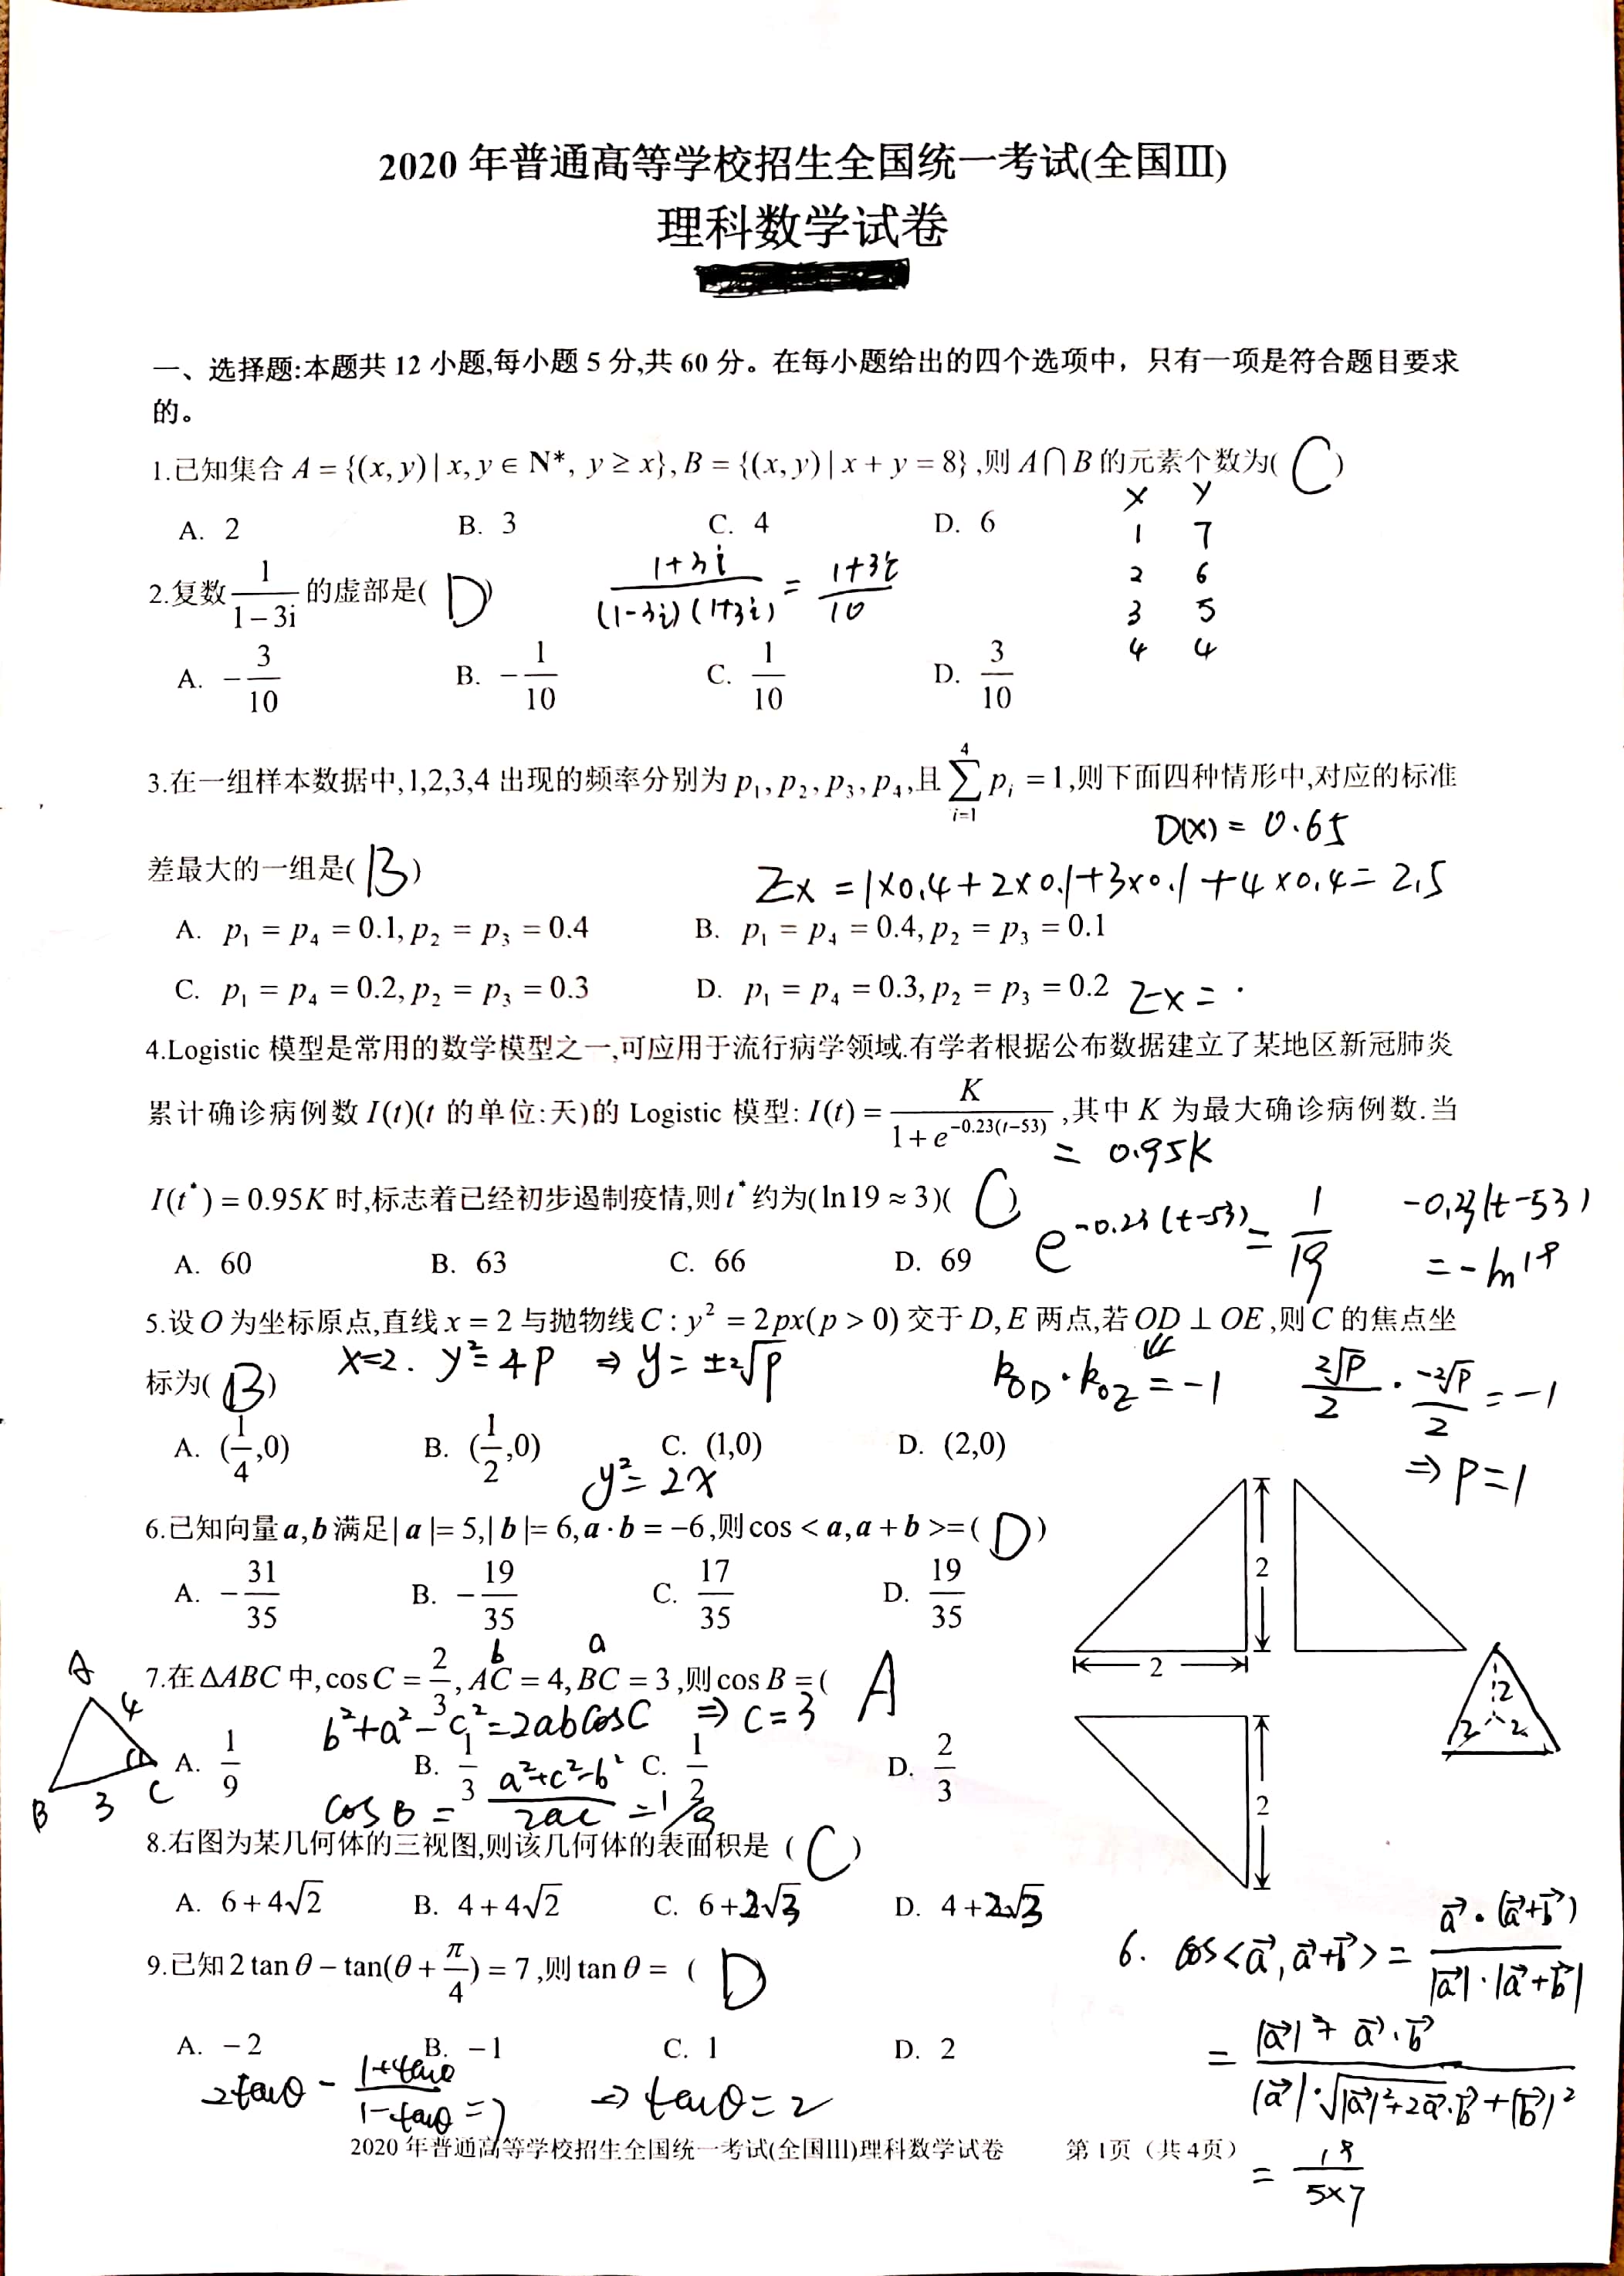 2020 年普通高等学校招生全国统一考试(全国III)
理科数学试卷
一、选择题:本题共 12 小题,每小题 5 分,共 60 分。在每小题给出的四个选项中，只有一项是符合题目要求
的。
1.已知集合 A = {(x, y) | x, y ∈ N*, y ≥ x}, B = {(x, y) | x + y = 8} ,则 A⋂B 的元素个数为( C )
A. 2 B. 3 C. 4 D. 6
x y
1 7
2 6
3 5
4 4
2.复数 1/(1−3i) 的虚部是( D ) (1+3i)/((1-3i)(1+3i)) = (1+3i)/10
A. −3/10 B. −1/10 C. 1/10 D. 3/10
3.在一组样本数据中,1,2,3,4 出现的频率分别为 p₁, p₂, p₃, p₄,且 ∑_{i=1}^{4} pᵢ = 1,则下面四种情形中,对应的标准
D(X) = 0.65
差最大的一组是( B ) Ex = 1×0.4+2×0.1+3×0.1+4×0.4= 2.5
A. p₁ = p₄ = 0.1, p₂ = p₃ = 0.4 B. p₁ = p₄ = 0.4, p₂ = p₃ = 0.1
C. p₁ = p₄ = 0.2, p₂ = p₃ = 0.3 D. p₁ = p₄ = 0.3, p₂ = p₃ = 0.2 Ex = ·
4.Logistic 模型是常用的数学模型之一,可应用于流行病学领域.有学者根据公布数据建立了某地区新冠肺炎
累计确诊病例数 I(t)(t 的单位:天)的 Logistic 模型: I(t) = K/(1+e^{−0.23(t−53)}) ,其中 K 为最大确诊病例数.当
= 0.95K
I(t*) = 0.95K 时,标志着已经初步遏制疫情,则 t* 约为(ln19 ≈ 3)( C )
e^{-0.23(t-53)} = 1/19 -0.23(t-53)
= -ln19
A. 60 B. 63 C. 66 D. 69
5.设 O 为坐标原点,直线 x = 2 与抛物线 C : y² = 2px(p > 0) 交于 D, E 两点,若 OD ⊥ OE ,则 C 的焦点坐
标为( B ) x=2. y²=4p ⇒ y=±2√p k_OD·k_OE=-1 2√p/2 · -2√p/2 = -1
A. (1/4,0) B. (1/2,0) C. (1,0) D. (2,0)
y²=2x ⇒ p=1
6.已知向量 a, b 满足| a |= 5,| b |= 6, a · b = −6 ,则 cos < a, a + b >= ( D )
A. −31/35 B. −19/35 C. 17/35 D. 19/35
2
2
b a
7.在 ΔABC 中, cos C = 2/3, AC = 4, BC = 3 ,则 cos B = ( A
A
4
B 3 C
b²+a²-c²=2abcosC ⇒ c=3
A. 1/9 B. 1/3 C. 1/2 D. 2/3
cosB = (a²+c²-b²)/2ac = 1/9
2
2 2
2
8.右图为某几何体的三视图,则该几何体的表面积是 ( C )
A. 6 + 4√2 B. 4 + 4√2 C. 6 +2√3 D. 4 +2√3
9.已知 2 tan θ − tan(θ + π/4) = 7 ,则 tan θ = ( D
A. − 2 B. − 1 C. 1 D. 2
2tanθ - (1+tanθ)/(1-tanθ) = 7 ⇒ tanθ=2
6. cos<a⃗, a⃗+b⃗> = a⃗·(a⃗+b⃗)/(|a⃗|·|a⃗+b⃗|)
= (|a⃗|²+a⃗·b⃗)/(|a⃗|·√(|a⃗|²+2a⃗·b⃗+|b⃗|²))
= 19/(5×7)
2020 年普通高等学校招生全国统一考试(全国III)理科数学试卷 第 1页（共 4页）